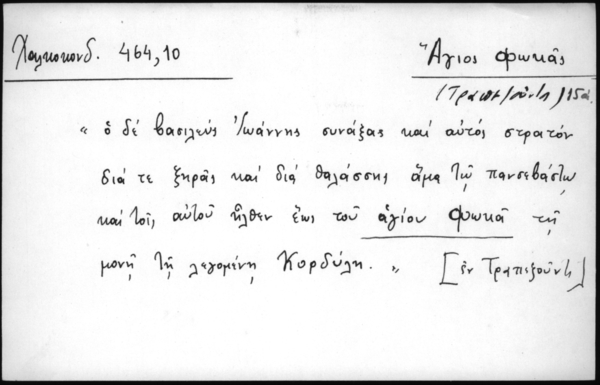 Χαλκοκονδ. 464,10
Ἅγιος Φωκᾶς
(Τραπεζοῦντα) 15 αἰ.
« ὁ δέ βασιλεύς Ἰωάννης συνάξας καί αὐτός στρατόν
διά τε ξηρᾶς καί διά θαλάσσης ἅμα τῷ πανσεβάστῳ
καί τοῖς αὐτοῦ ἦλθεν ἕως τοῦ ἁγίου Φωκᾶ τῇ
μονῇ τῇ λεγομένῃ Κορδύλη. » [ἐν Τραπεζοῦντι]